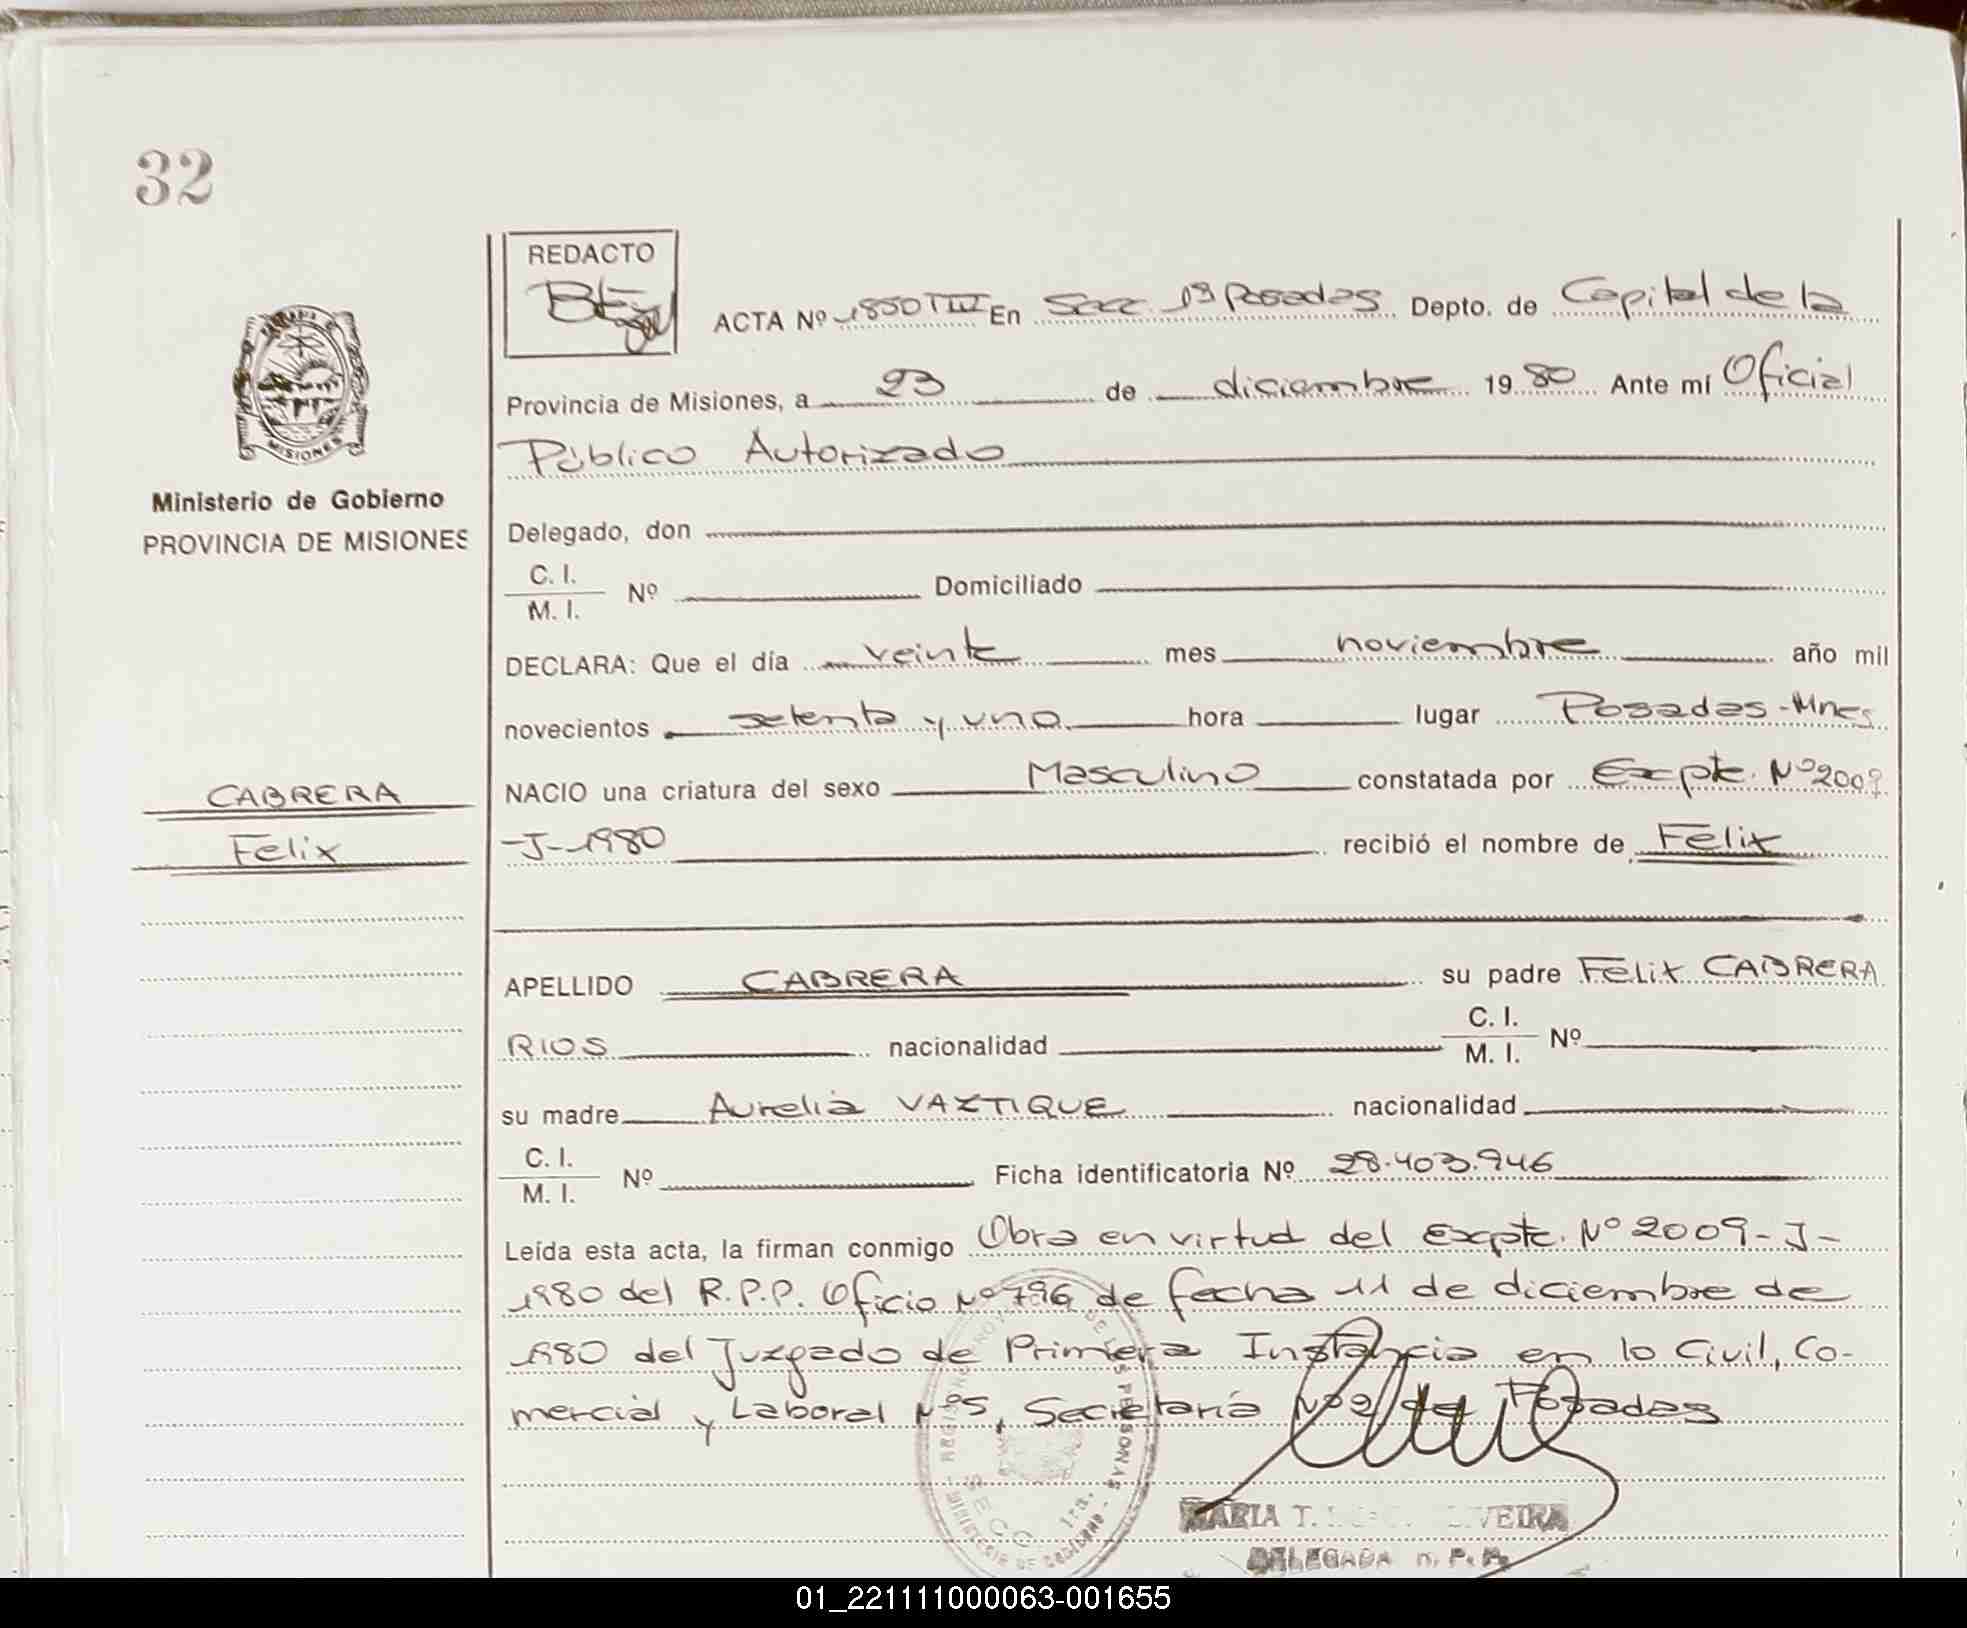 32
REDACTO
ACTA Nº 1850 T III En Secc. 1ª Posadas Depto. de Capital de la
Provincia de Misiones, a 23 de diciembre 1980 Ante mí Oficial
Público Autorizado
MISIONES
Ministerio de Gobierno
PROVINCIA DE MISIONES
Delegado, don
C. I.
M. I. Nº Domiciliado
DECLARA: Que el día veinte mes noviembre año mil
novecientos setenta y uno hora lugar Posadas-Mnes
CABRERA
Felix
NACIO una criatura del sexo Masculino constatada por Expte. Nº 2009
-J-1980 recibió el nombre de Felix
APELLIDO CABRERA su padre Felix CABRERA
RIOS nacionalidad C. I.
M. I. Nº
su madre Aurelia VAZTIQUE nacionalidad
C. I.
M. I. Nº Ficha identificatoria Nº 28.403.946
Leída esta acta, la firman conmigo Obra en virtud del Expte. Nº 2009-J-
1980 del R.P.P. Oficio Nº 796 de fecha 11 de diciembre de
1980 del Juzgado de Primera Instancia en lo Civil, Co-
mercial y Laboral Nº 5, Secretaría Nº 2 de Posadas
DE LAS PERSONAS
MINISTERIO DE GOBIERNO
SECC. 1ra.
MARIA T.
DELEGADA R. P. P.
01_221111000063-001655